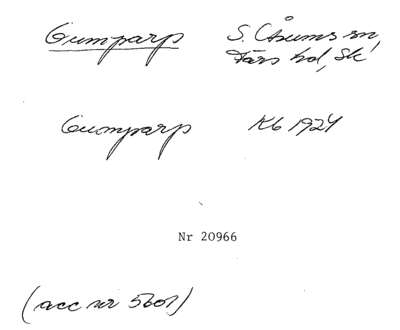 Gumparp S. Åsums sn,
Färs hd, Sk
Gumparp Kb 1924
Nr 20966
(acc nr 5601)